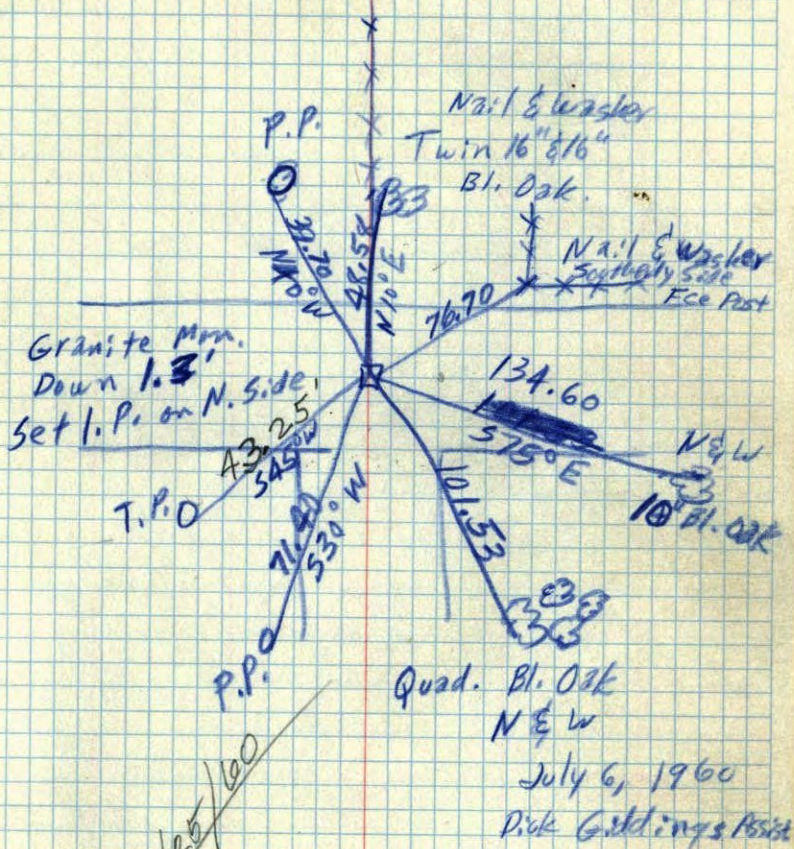 P.P.
Nail & Washer
Twin 16" & 16"
Bl. Oak
39.70
48.58
N10°E
76.70
Nail & Washer
Southerly Side
Fce Post
Granite Mon.
Down 1.3'
Set I.P. on N. Side
134.60
S75°E
N & W
10" Bl. Oak
43.25'
S45°W
T.P.
S30°W
101.53
P.P.
Quad. Bl. Oak
N & W
July 6, 1960
Dick Giddings Assist